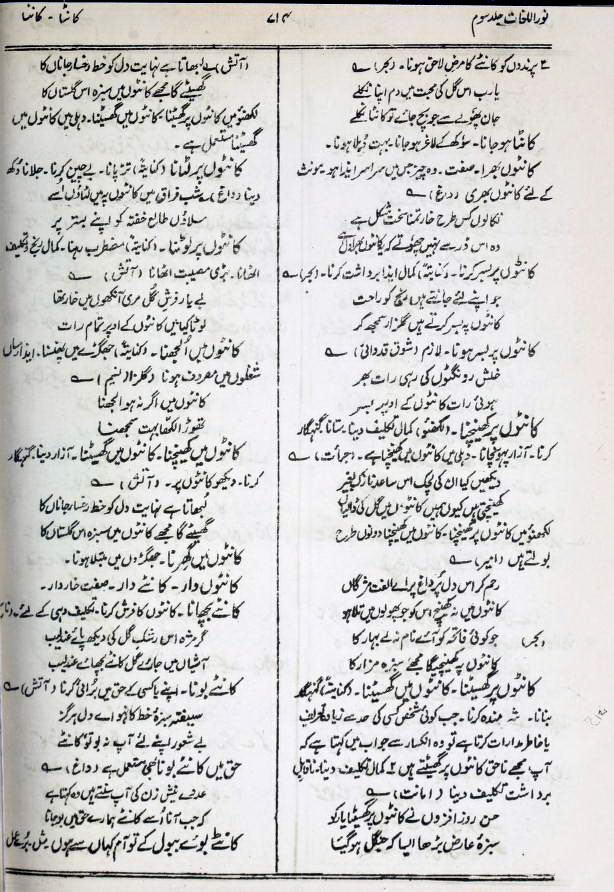 نور اللغات جلد سوم
۷۱۴
کانٹا - کانٹا
۲ پرندوں کو کانٹے کا مرض لاحق ہونا۔ (بحر) ؎
یارب اس گل کی محبت میں دم اپنا نکلے
جان چھوٹے سے جو بچ جائے تو کانٹا نکلے
کانٹا ہو جانا۔ سوکھ کے لاغر ہو جانا۔ بہت دُبلا ہونا۔
کانٹوں بھرا۔ صفت۔ وہ چیز جس میں سراسر ایذا ہو۔ مونث
کے لئے کانٹوں بھری (داغ) ؎
نکالوں کس طرح خارِ تمنا سخت مشکل ہے
وہ اس ڈر سے نہیں چھوتے کہ کانٹوں بھرا دل ہے
کانٹوں پر بسر کرنا۔ (کنایۃً) کمال ایذا برداشت کرنا۔ (بحر) ؎
جو اپنے لئے جانتے ہیں رنج کو راحت
کانٹوں پہ بسر کرتے ہیں گلزار سمجھ کر
کانٹوں پر بسر ہونا۔ لازم (شوق قدوائی) ؎
خلش رونگٹوں کی رہی رات بھر
ہوئی رات کانٹوں کے اوپر بسر
کانٹوں پر کھینچنا۔ (لکھنؤ) کمال تکلیف دینا۔ ستانا۔ گنہگار
کرنا۔ آزار پہونچانا۔ دہلی میں کانٹوں میں کھینچنا ہے۔ (جرأت) ؎
دیکھیں کیا ان کی لچک اس ساعدِ نازک بغیر
کھینچتی ہیں کیوں ہمیں کانٹوں میں گل کی ڈالیاں
لکھنؤ میں کانٹوں پر کھینچنا۔ کانٹوں میں کھینچنا دونوں طرح
بولتے ہیں (امیر) ؎
رحم کر اس دلِ پُرداغ پر اے الفتِ مژگاں
کانٹوں میں نہ کھینچ اس کو جو پھولوں میں تلا ہو
(بحر) جو کوئی فاتحہ کو آئے نام نہ لے بہار کا
کانٹوں پر کھینچے گا مجھے سبزہ مزار کا
کانٹوں پر گھسیٹنا۔ کانٹوں میں گھسیٹنا۔ (کنایۃً) گنہگار
بنانا۔ شرمندہ کرنا۔ جب کوئی شخص کسی کی حد سے زیادہ تعریف
یا خاطر مدارات کرتا ہے تو وہ انکسار سے جواب میں کہتا ہے کہ
آپ مجھے ناحق کانٹوں پر گھسیٹتے ہیں ۲ کمال تکلیف دینا۔ ناقابل
برداشت تکلیف دینا (امانت) ؎
حسن روز افزوں نے کانٹوں پر گھسیٹا یار کو
سبزۂ عارض بڑھا ایسا کہ جنگل ہو گیا
(آتش) ؎ لبھاتا ہے نہایت دل کو خط رخسارِ جاناں کا
گھسیٹے گا مجھے کانٹوں میں سبزہ اس گلستاں کا
لکھنؤ میں کانٹوں پر گھسیٹنا۔ کانٹوں میں گھسیٹنا۔ دہلی میں کانٹوں میں
گھسیٹنا مستعمل ہے۔
کانٹوں پر لٹانا (کنایۃً) تڑپانا۔ بے چین کرنا۔ جلانا دکھ
دینا (داغ) ؎ شبِ فراق میں کانٹوں پہ میں لٹاؤں اسے
سلاؤں طالعِ خفتہ کو اپنے بستر پر
کانٹوں پر لوٹنا۔ (کنایۃً) مضطرب رہنا۔ کمال رنج و تکلیف
اٹھانا۔ بڑی مصیبت اٹھانا (آتش) ؎
بے یار فرشِ گل مری آنکھوں میں خار تھا
لوٹا کیا میں کانٹوں کے اوپر تمام رات
کانٹوں میں الجھنا۔ (کنایۃً) جھگڑے میں پھنسنا۔ ایذا رساں
شغلوں میں مصروف ہونا (گلزارِ نسیم) ؎
کانٹوں میں اگر نہ ہو الجھنا
تھوڑا لکھا بہت سمجھنا
کانٹوں میں کھینچنا۔ کانٹوں میں گھسیٹنا۔ آزار دینا۔ گنہگار
کرنا۔ دیکھو کانٹوں پر۔ (آتش) ؎
لبھاتا ہے نہایت دل کو خط رخسارِ جاناں کا
گھسیٹے گا مجھے کانٹوں میں سبزہ اس گلستاں کا
کانٹوں میں گھرنا۔ جھگڑوں میں مبتلا ہونا۔
کانٹوں دار۔ کانٹے دار۔ صفت خاردار۔
کانٹے بچھانا۔ کانٹوں کا فرش کرنا۔ تکلیف دہی کے لئے۔
گر مژہ اس رشکِ گل کی دیکھ پائے عندلیب
آشیاں میں جائے گل کانٹے بچھائے عندلیب
کانٹے بونا۔ اپنے یا کسی کے حق میں برائی کرنا (آتش) ؎
سیفتہ سبزۂ خط کا نہ ہو اے دل ہرگز
بے شعور اپنے لئے آپ نہ بو تو کانٹے
حق میں کانٹے بونا بھی مستعمل ہے (داغ) ؎
عدوئے نیش زن کی آپ سنتے ہیں وہ کہتا ہے
کہ جب آنا اسے کانٹے ہمارے حق میں بو جانا
کانٹے بوئے ببول کے تو آم کہاں سے ہوں